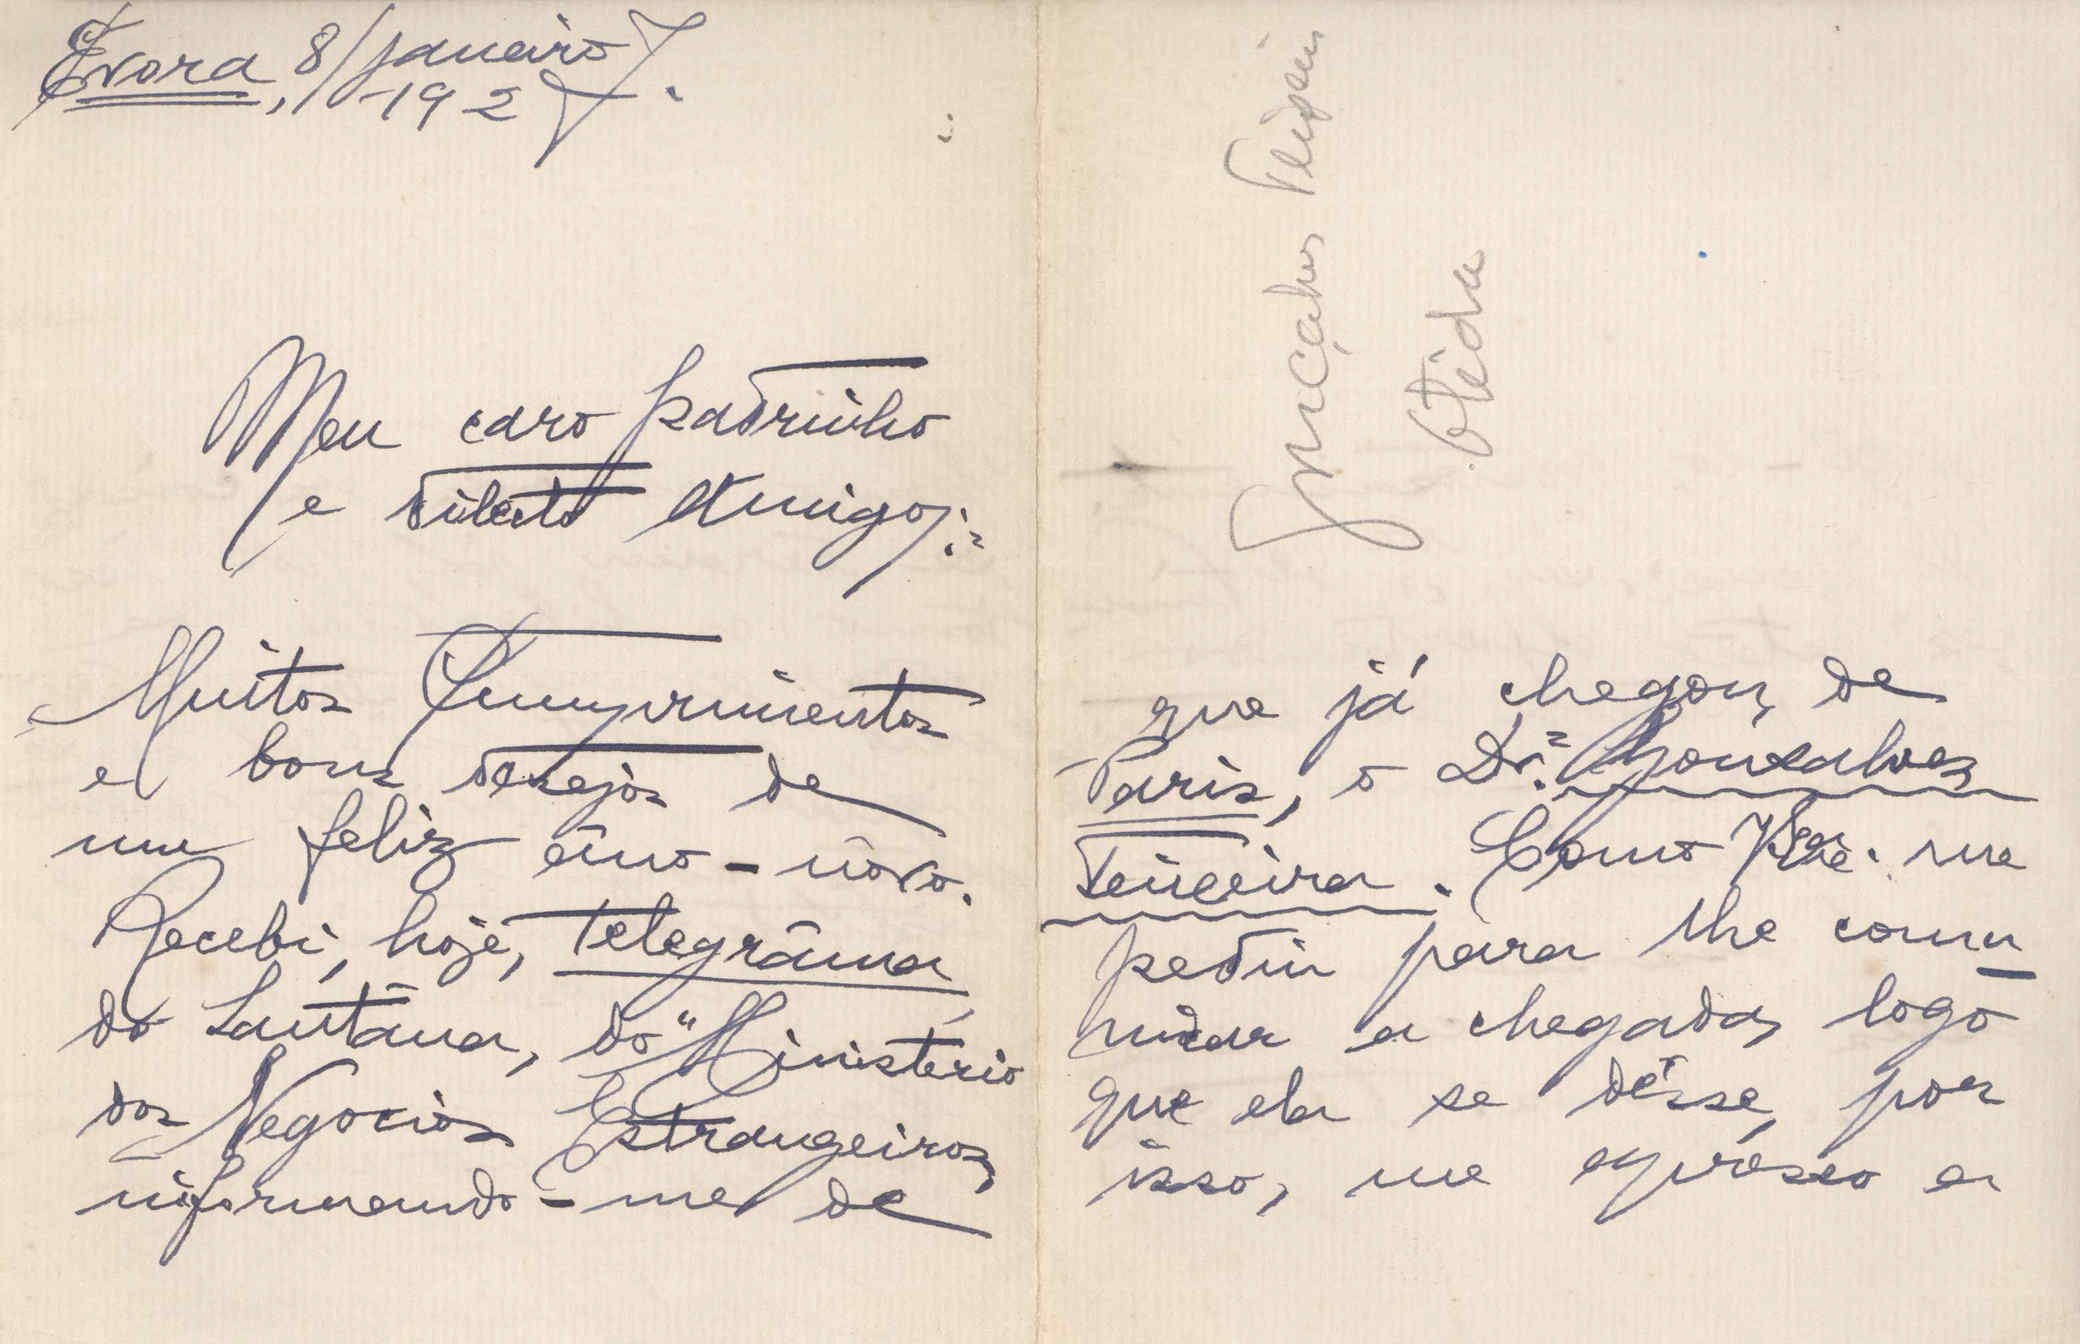 Évora, 8/janeiro
1927.
Meu caro padrinho
e dilecto Amigo:
Muitos Cumprimentos
e bons desejos de
um feliz âno-nôvo.
Recebi, hoje, telegrâma
do Santâna, do "Ministerio
dos Negocios Estrangeiros,
informando-me de
que já chegou, de
Paris, o Dr. Gonsalves
Teixeira. Como me
pediu para lhe comu
nicar a chegada, logo
que ela se désse, por
isso, me aprésso a
Gonçalves Teixeira